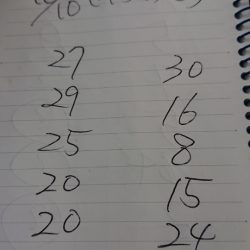 27 30
29 16
25 8
20 15
20 24